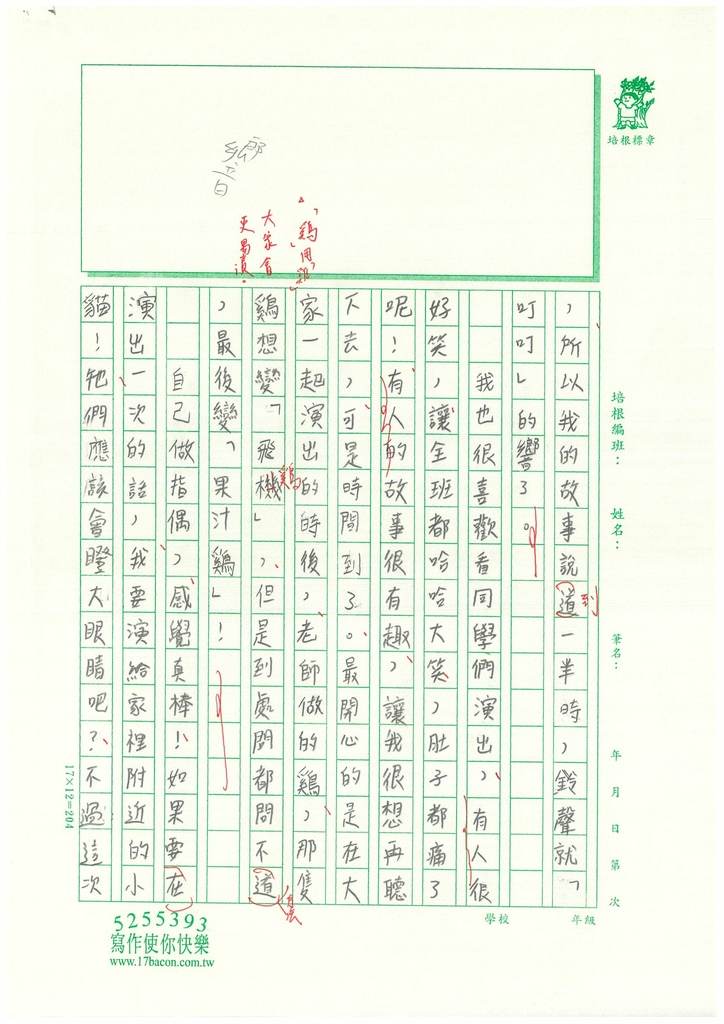 培根標章
鄉音
「鷄用說」
大家會
更易讀。
，所以我的故事說道一半時，鈴聲就「
叮叮」的響了。
我也很喜歡看同學們演出，有人很
好笑，讓全班都哈哈大笑，肚子都痛了
呢！有人的故事很有趣，讓我很想再聽
下去，可是時間到了。最開心的是在大
家一起演出的時後，老師做的鷄，那隻
鷄想變「飛機」，但是到處問都問不道
，最後變「果汁鷄」！
自己做指偶，感覺真棒！如果要在
演出一次的話，我要演給家裡附近的小
貓！牠們應該會瞪大眼睛吧？不過這次
到
鷄
培根編班：
姓名：
筆名：
年 月 日 第 次
學校
年級
17×12=204
5255393
寫作使你快樂
www.17bacon.com.tw